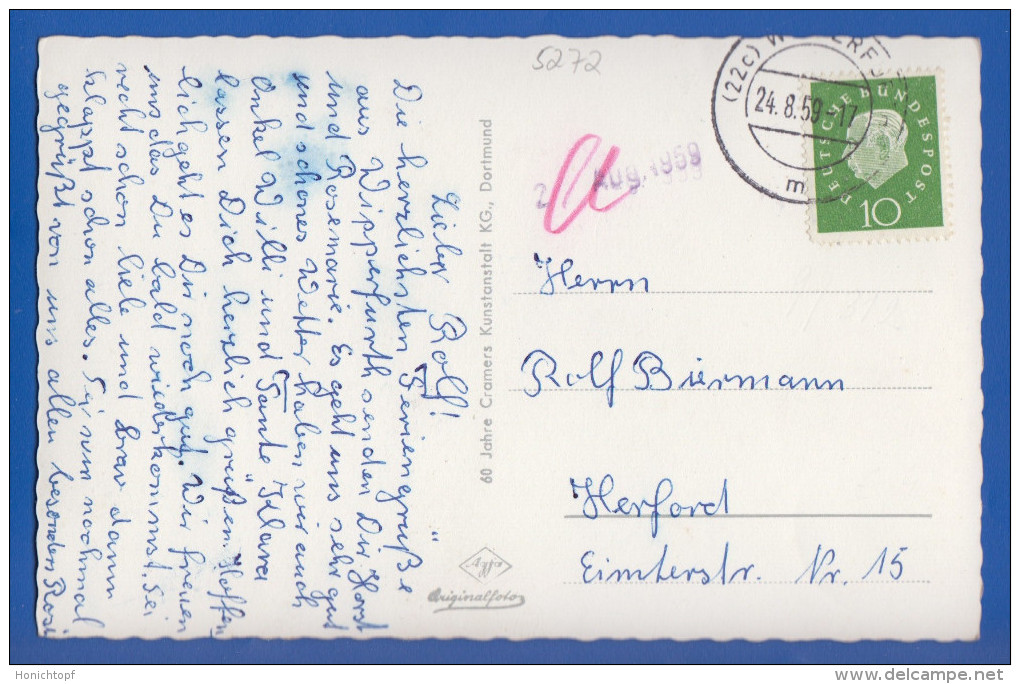 Lieber Rolf!
Die herzlichsten Feriengrüße
aus Wipperfürth senden Dir Horst
und Rosemarie. Es geht uns sehr gut
und schönes Wetter haben wir auch
Onkel Willi und Tante Klara
lassen Dich herzlich grüßen. Hoffent
lich geht es Dir noch gut. Wir freuen
uns das Du bald wiederkommst. Sei
recht schön liebe und brav dann
klappt schon alles. Sei nun nochmal
gegrüßt von uns allen besonders Rosi
60 Jahre Cramers Kunstanstalt KG., Dortmund
Agfa
Originalfoto
5272
(22c) W PPERF
24.8.59-17
m
DEUTSCHE BUNDESPOST
10
2 Aug. 1959
Herrn
Rolf Biermann
Herford
Eimterstr. Nr. 15
Honichtopf
www.delcampe.net